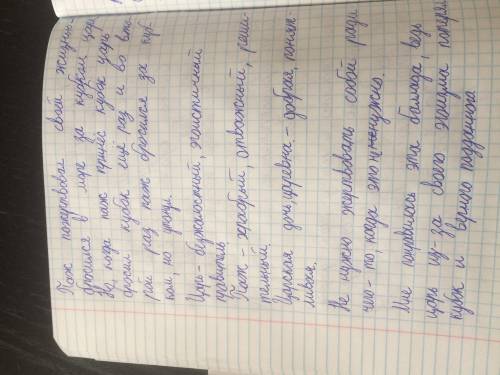 Паж пожертвовал своей жизнью
бросился в море за кубком царя
Но когда паж принёс кубок царь
бросил кубок ещё раз и во вто-
рой раз паж бросился за куб-
ком, но утонул.
Царь - безжалостный, эгоистичный
правитель.
Паж - храбрый, отважный, реши-
тельный.
Царская дочь, царевна - добрая, понят-
ливая.
Не нужно жертвовать собой ради
чего-то, когда это не нужно.
Мне понравилась эта баллада, ведь
царь из-за своего эгоизма потерял
кубок и верного подданного